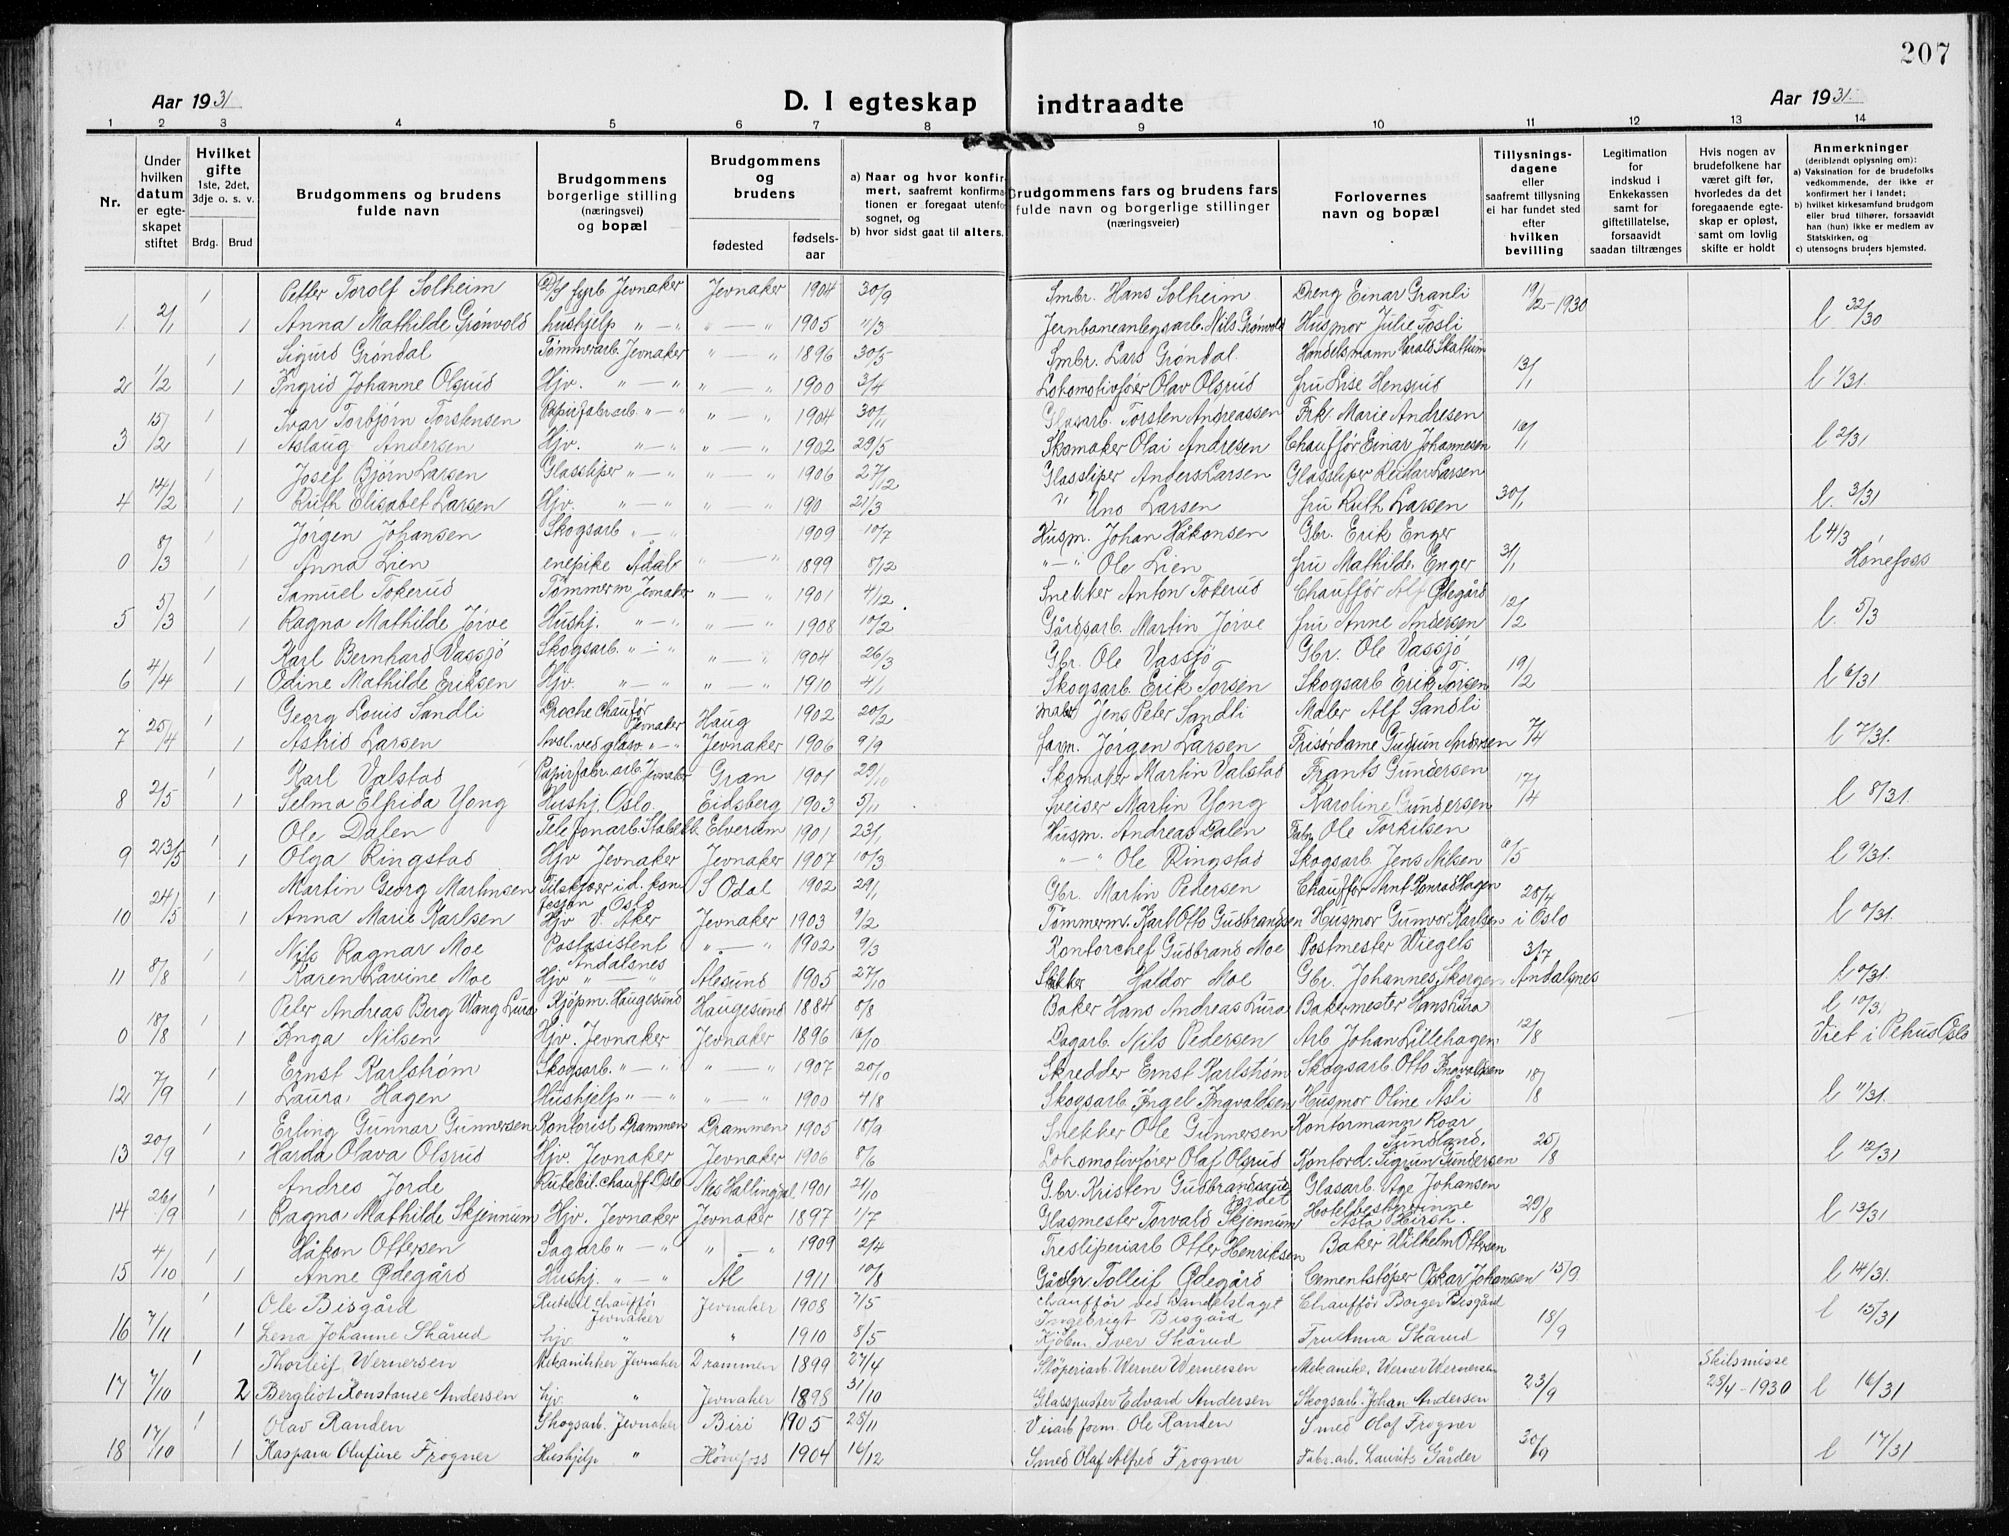 207
Aar 1931 D. I egteskap indtraadte Aar 1931.
1 2 3 4 5 6 7 8 9 10 11 12 13 14
Nr.
Under hvilken datum er egteskapet stiftet
Hvilket gifte 1ste, 2det, 3dje o. s. v.
Brdg. Brud
Brudgommens og brudens fulde navn
Brudgommens borgerlige stilling (næringsvei) og bopæl
Brudgommens og brudens
fødested fødsels-aar
a) Naar og hvor konfirmert, saafremt konfirmationen er foregaat utenfor sognet, og
b) hvor sidst gaat til alters.
Brudgommens fars og brudens fars fulde navn og borgerlige stillinger (næringsveier)
Forlovernes navn og bopæl
Tillysnings-dagene eller saafremt tillysning ei har fundet sted efter hvilken bevilling
Legitimation for indskud i Enkekassen samt for giftetillatelse, forsaavidt saadan tiltrænges
Hvis nogen av brudefolkene har været gift før, hvorledes da det foregaaende egteskap er opløst, samt om lovlig skifte er holdt
Anmerkninger (deriblandt oplysning om):
a) Vaksination for de brudefolks vedkommende, der ikke er konfirmert her i landet;
b) hvilket kirkesamfund brudgom eller brud tilhører, forsaavidt han (hun) ikke er medlem av Statskirken, og
c) utensogns bruders hjemsted.
1 Petter Torolf Solheim Jevnaker Jevnaker 1904 30/9 Smbr. Hans Solheim Dreng Einar Granli 19/12-1930
2/1 1 Anna Mathilde Grønvold hushjelp " — " " — " 1905 11/3 Jernbaneanlegsarb. Nils Grønvold Husmor Julie Fosli l 32/30
1 Sigurd Grøndal Tømmerarb. Jevnaker " — " 1896 30/5 Smbr. Lars Grøndal. Handelsmann Harald Skattum
2 1/2 1 Ingrid Johanne Olsrud Hjv. " — " " — " 1900 3/4 Lokomotivfører Olav Olsrud fru Lise Hensrud 13/1 l 1/31.
1 Ivar Torbjørn Torstensen Papirfabr.arb. " — " " — " 1904 30/11 Glasarb. Torsten Andreassen Frk. Marie Andresen
3 15/2 1 Aslaug Andersen Hjv. " — " " — " 1902 29/5 Skomaker Olai Andresen Chauffør Einar Johannesen 16/1 l 2/31
1 Josef Bjørn Larsen Glassliper " — " " — " 1906 27/12 Glassliper Anders Larsen Glassliper Reidar Larsen
4 14/2 1 Ruth Elisabet Larsen Hjv. " — " " — " 190 21/3 " Uno Larsen fru Ruth Larsen 30/1 l. 3/31
1 Jørgen Johansen Skogsarb " — " 1909 10/7 Husm. Johan Håkonsen Gbr. Erik Enger l 4/3
0 8/3 1 Anna Lien enepike Ådal " — " 1899 8/12 " — " Ole Lien fru Mathilde Enger 31/1 Hønefoss
1 Samuel Tokerud Tømmerm Jevnaker " — " 1901 4/12 Snekker Anton Tokerud Chauffør Alf Ødegård
5 5/3 1 Ragna Mathilde Jørve Hushj. " — " " — " 1908 10/2 Gårdsarb. Martin Jørve fru Anne Andersen 12/2 l. 5/3
1 Karl Bernhard Vassjø Skogsarb. " — " " — " 1904 26/3 Gbr. Ole Vassjø Gbr. Ole Vassjø
6 4/4 1 Odine Mathilde Eriksen Hjv. " — " " — " 1910 4/1 Skogsarb. Erik Torsen Skogsarb Erik Torsen 19/2 l 6/31
1 Georg Louis Sandli Droche chauffør Jevnaker Haug 1902 20/2 maler Jens Peter Sandli Maler Alf Sandli
7 25/4 1 Astrid Larsen Avsl. ved glasv. " — " Jevnaker 1906 9/9 form. Jørgen Larsen Frisørdame Gudrun Andersen 7/4 l 7/31.
1 Karl Valstad Papirfabr. arb. Jevnaker Gran 1901 29/10 Skomaker Martin Valstad Frants Gundersen
8 2/5 1 Selma Elfrida Yong Hushj. Oslo Eidsberg 1903 5/11 Sveiser Martin Yong Karoline Gundersen 17/4 l 8/31.
1 Ole Dalen Telefonarb. Stabekk Elverum 1901 23/1 Husm. Andreas Dalen Ole Torkilsen
9 23/5 1 Olga Ringstad Hjv Jevnaker Jevnaker 1907 10/3 " — " Ole Ringstad Skogsarb. Jens Nilsen 6/5 l 9/31.
1 Martin Georg Martinsen Tilskjærer i d. konfesjon Oslo S Odal 1902 29/1 Gbr. Martin Pedersen Chauffør Arnt Konrad Hagen 28/4
10 24/5 1 Anna Marie Karlsen Hjv V. Aker Jevnaker 1903 9/2 Tømmerm. Karl Otto Gudbrandsen Husmor Gunvor Karlsen i Oslo l 0/31.
1 Nils Ragnar Moe Postasistent Åndalsnes " — " 1902 9/3 Kontorchef Gudbrand Moe Postmester Wiegels 3/7
11 8/8 1 Karen Lavine Moe Hjv " — " Ålesund 1905 27/10 Haldor Moe Gbr. Johannes Skorgen Åndalsnes l 0/31.
1 Peter Andreas Berg Wang Lura Kjøpm. Haugesund Haugesund 1884 8/8 Baker Hans Andreas Lura Bakermester Hans Lura l 10/31
0 18/8 1 Inga Nilsen Hjv. Jevnaker Jevnaker 1896 16/10 Dagarb. Nils Pedersen Arb. Johan Lillehagen 12/8 Viet i Pehus Oslo
1 Ernst Karlstrøm Skogsarb. " — " " — " 1907 20/10 Skredder Ernst Karlstrøm Skogsarb Otto Ingvaldsen
12 7/9 1 Laura Hagen Hushjelp " — " " — " 1900 4/8 Skogsarb. Engel Ingvaldsen Husmor Oline Asli 18/8 l 11/31.
1 Erling Gunnar Gunnersen Kontorist Drammen Drammen 1905 18/9 Snekker Ole Gunnersen Kontormann Roar Sundland,
13 20/9 1 Harda Olava Olsrud Hjv. Jevnaker Jevnaker 1906 8/6 Lokomotivfører Olaf Olsrud Kontord. Sigrun Gundersen 25/8 l 12/31
1 Andres Jorde Rutebil.chauff. Oslo Nes Hallingdal 1901 21/10 Gbr. Kristen Gudbrandsgutejordet Glasarb. Åge Johansen
14 26/9 1 Ragna Mathilde Skjennum Hjv. Jevnaker Jevnaker 1897 1/7 Glasmester Torvald Skjennum Hotelbestyrerinne Asta Hirsh. 29/8 l 13/31
1 Håkon Ottersen Sagarb " — " " — " 1909 2/4 Tresliperiarb Otter Henriksen Baker Wilhelm Ottersen
15 4/10 1 Anne Ødegård Hushj. " — " Ål 1911 10/8 Gårdbr. Tolleif Ødegård Cementstøper Oskar Johansen 15/9 l 14/31.
1 Ole Bisgård Rutebilchauffør Jevnaker Jevnaker 1908 7/5 chauffør ved handelslaget Ingebrigt Bisgård Chauffør Borger Bisgård
16 7/11 1 Lena Johanne Skårud hjv. " " 1910 8/5 Kjøbm. Iver Skårud Fru Anna Skårud 18/9 l 15/31
1 Thorleif Wernersen Mekanikker Jevnaker Drammen 1899 27/4 Støperiarb. Werner Wernersen Mekanike. Werner Wernersen Skilsmisse
17 7/10 2 Bergliot Konstanse Andersen hjv. " Jevnaker 1898 31/10 Glasspuster Edvard Andersen Skogsarb. Johan Andersen 23/9 28/4-1930 l 16/31
1 Olav Randen Skogsarb. Jevnaker Biri 1905 28/11 Veiarb form. Ole Randen Smed Olaf Frogner
18 17/10 1 Kaspara Olufine Frogner Hushjelp " Hönefoss 1904 16/12 Smed Olaf Alfred Frogner Fabr. arb. Laurits Gårder 30/9 l 17/31